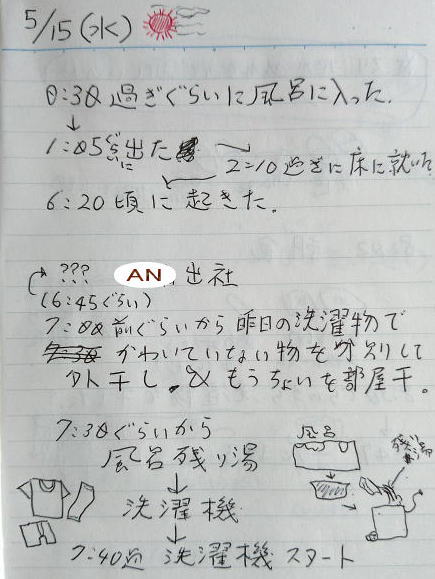 5/15(水)
0:30過ぎぐらいに風呂に入った.
↓
1:05ぐらいに出た
2:10過ぎに床に就いた
6:20頃に起きた.
??? AN 出社
(6:45ぐらい)
7:00前ぐらいから昨日の洗濯物で
かわいていない物を分別して
外干し. & もうちょいを部屋干.
7:30ぐらいから
風呂残り湯
↓
洗濯機
↓
7:40過 洗濯機スタート
風呂
残り湯